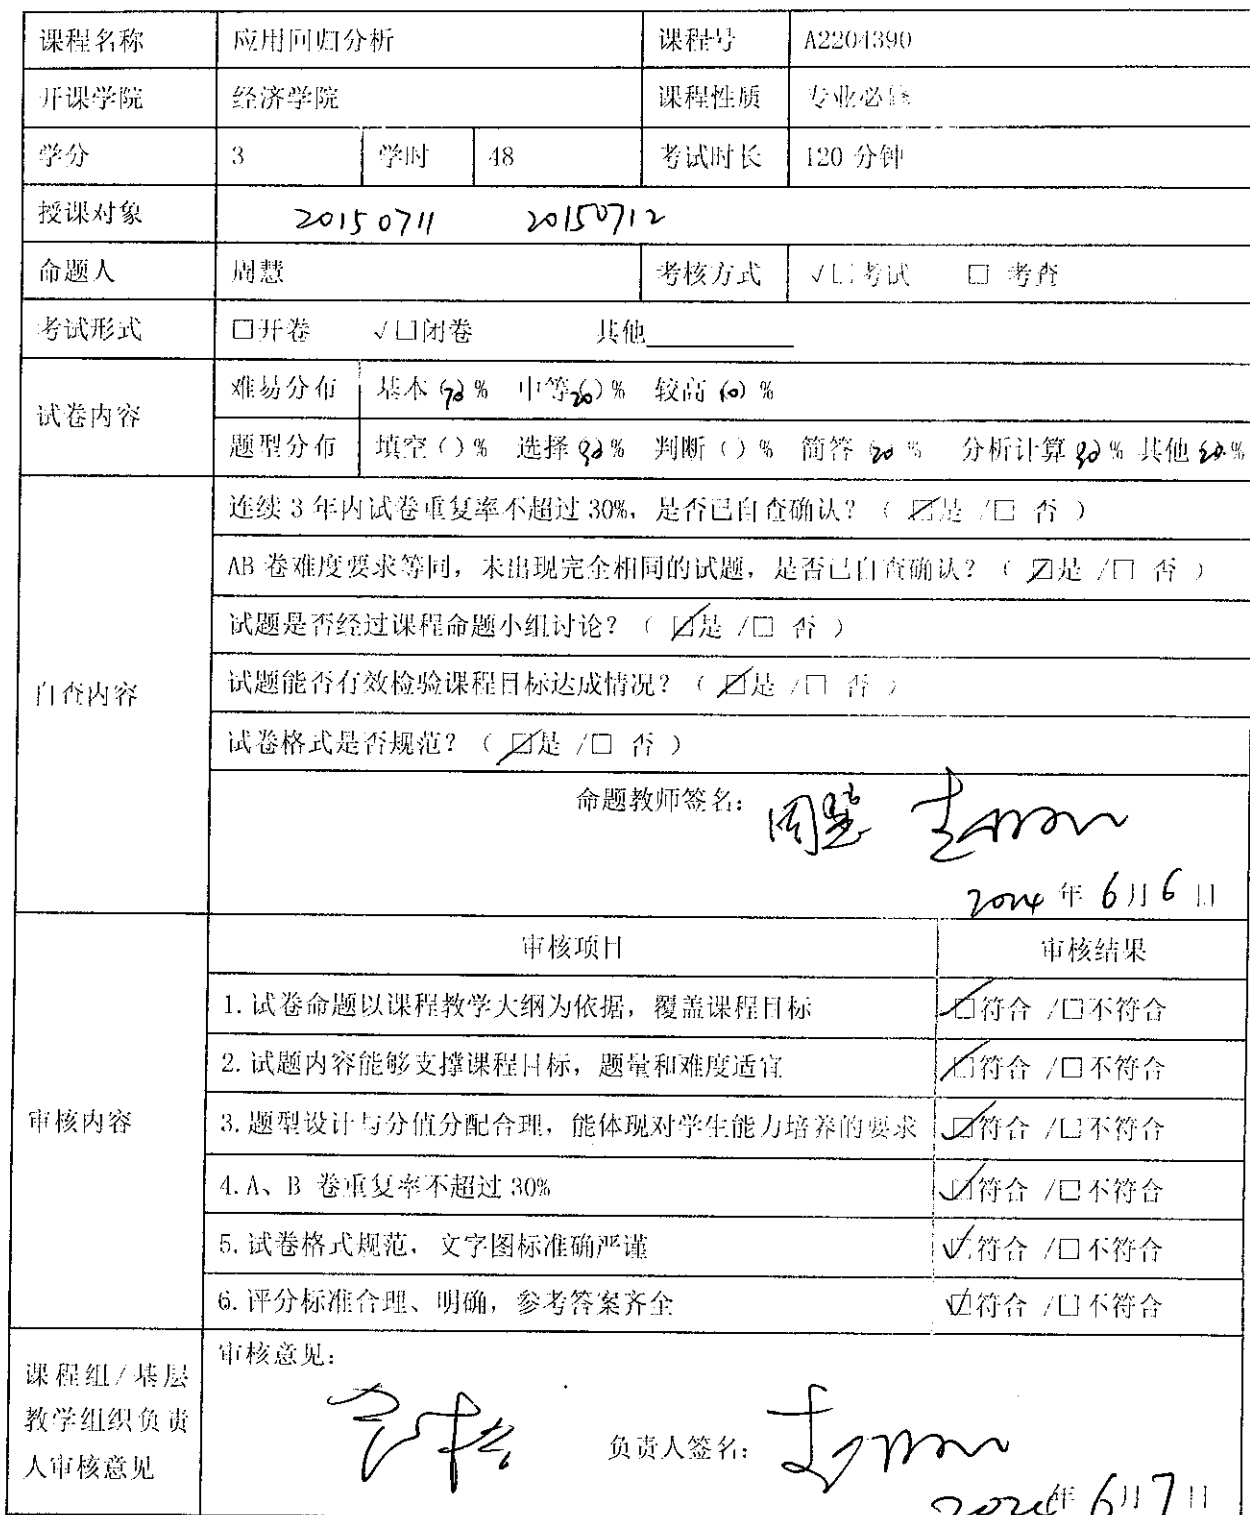 课程名称 应用回归分析 课程号 A2204390
开课学院 经济学院 课程性质 专业必修
学分 3 学时 48 考试时长 120 分钟
授课对象 20150711 20150712
命题人 周慧 考核方式 √□考试 □ 考查
考试形式 □开卷 √□闭卷 其他
试卷内容
难易分布 基本(70)% 中等(20)% 较高(10)%
题型分布 填空()% 选择()% 判断()% 简答(20)% 分析计算()% 其他()%
自查内容
连续 3 年内试卷重复率不超过 30%，是否已自查确认？（ ☑是 /□ 否 ）
AB 卷难度要求等同，未出现完全相同的试题，是否已自查确认？（ ☑是 /□ 否 ）
试题是否经过课程命题小组讨论？（ ☑是 /□ 否 ）
试题能否有效检验课程目标达成情况？（ ☑是 /□ 否 ）
试卷格式是否规范？（ ☑是 /□ 否 ）
命题教师签名： 周慧
2024 年 6 月 6 日
审核内容
审核项目 审核结果
1. 试卷命题以课程教学大纲为依据，覆盖课程目标 ☑符合 /□不符合
2. 试题内容能够支撑课程目标，题量和难度适宜 ☑符合 /□不符合
3. 题型设计与分值分配合理，能体现对学生能力培养的要求 ☑符合 /□不符合
4. A、B 卷重复率不超过 30% ☑符合 /□不符合
5. 试卷格式规范，文字图标准确严谨 ☑符合 /□不符合
6. 评分标准合理、明确，参考答案齐全 ☑符合 /□不符合
课程组/基层
教学组织负责
人审核意见
审核意见：
负责人签名：
2024 年 6 月 7 日